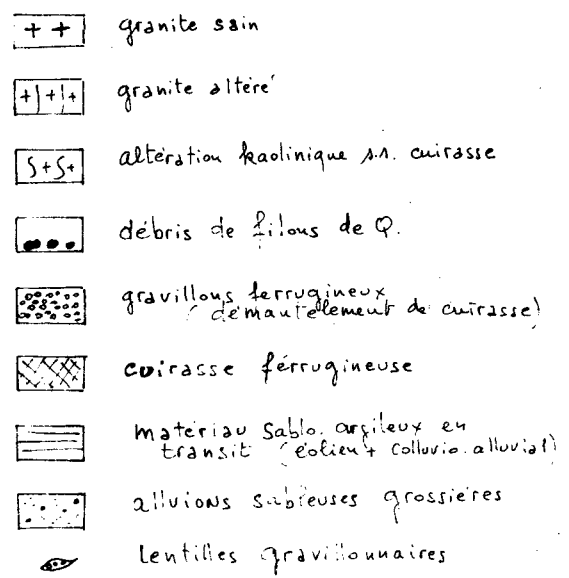 granite sain
granite altéré
altération kaolinique s.s. cuirasse
débris de filons de Q.
gravillons ferrugineux
(démantèlement de cuirasse)
cuirasse férrugineuse
matériau Sablo. argileux en
transit (éolien + Colluvio. alluvial)
alluvions sableuses grossières
lentilles gravillonnaires